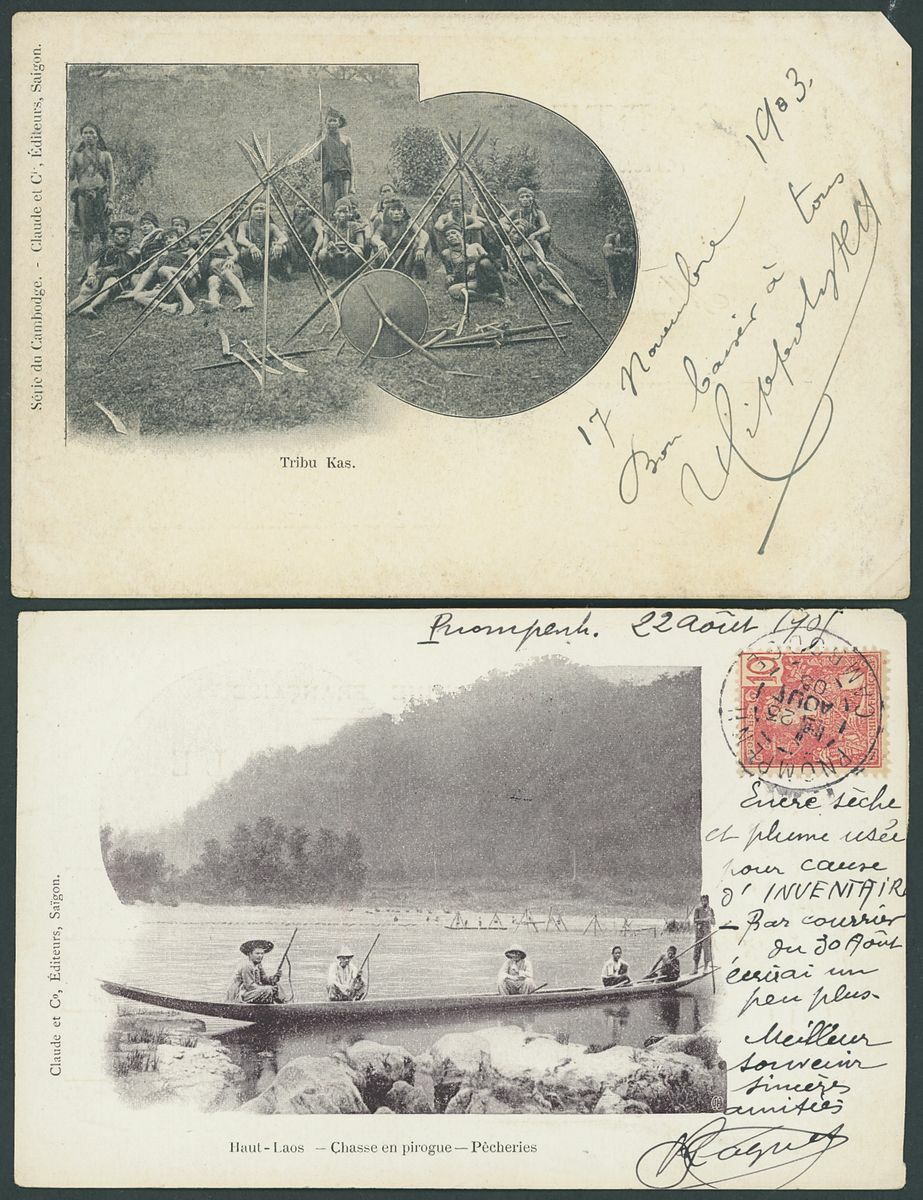 Série du Cambodge. - Claude et Cie, Éditeurs, Saigon.
Tribu Kas.
17 Novembre 1903.
Bon baiser à tous
Pnompenh. 22 août 190
10
PNUMPENH
CAMBODGE
23
AOUT
03
Encre sèche
et plume usée
pour cause
d'INVENTAIRE
- Par courrier
du 30 Août
écrirai un
peu plus-
Meilleur
souvenir
sincères
amitiés
Claude et Co, Éditeurs, Saïgon.
Haut-Laos - Chasse en pirogue - Pêcheries